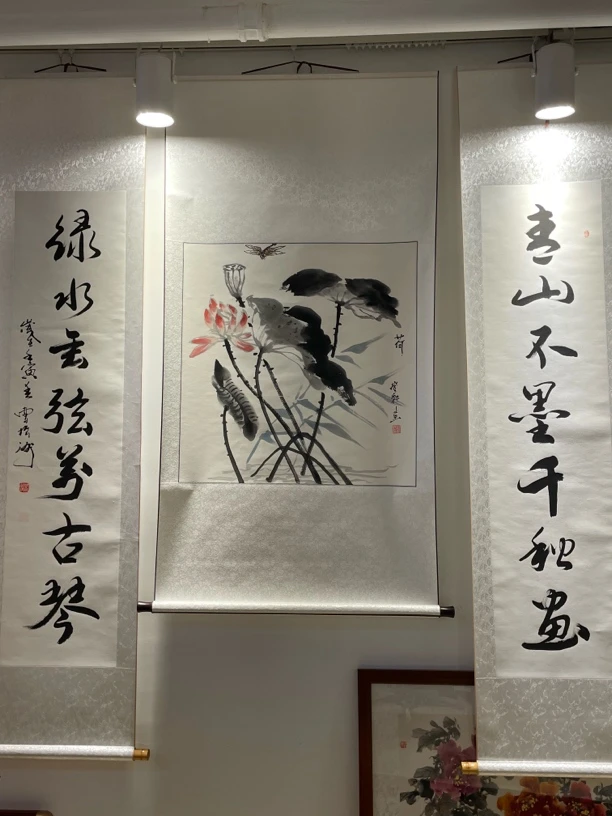 青山不墨千秋画
绿水无弦万古琴
荷